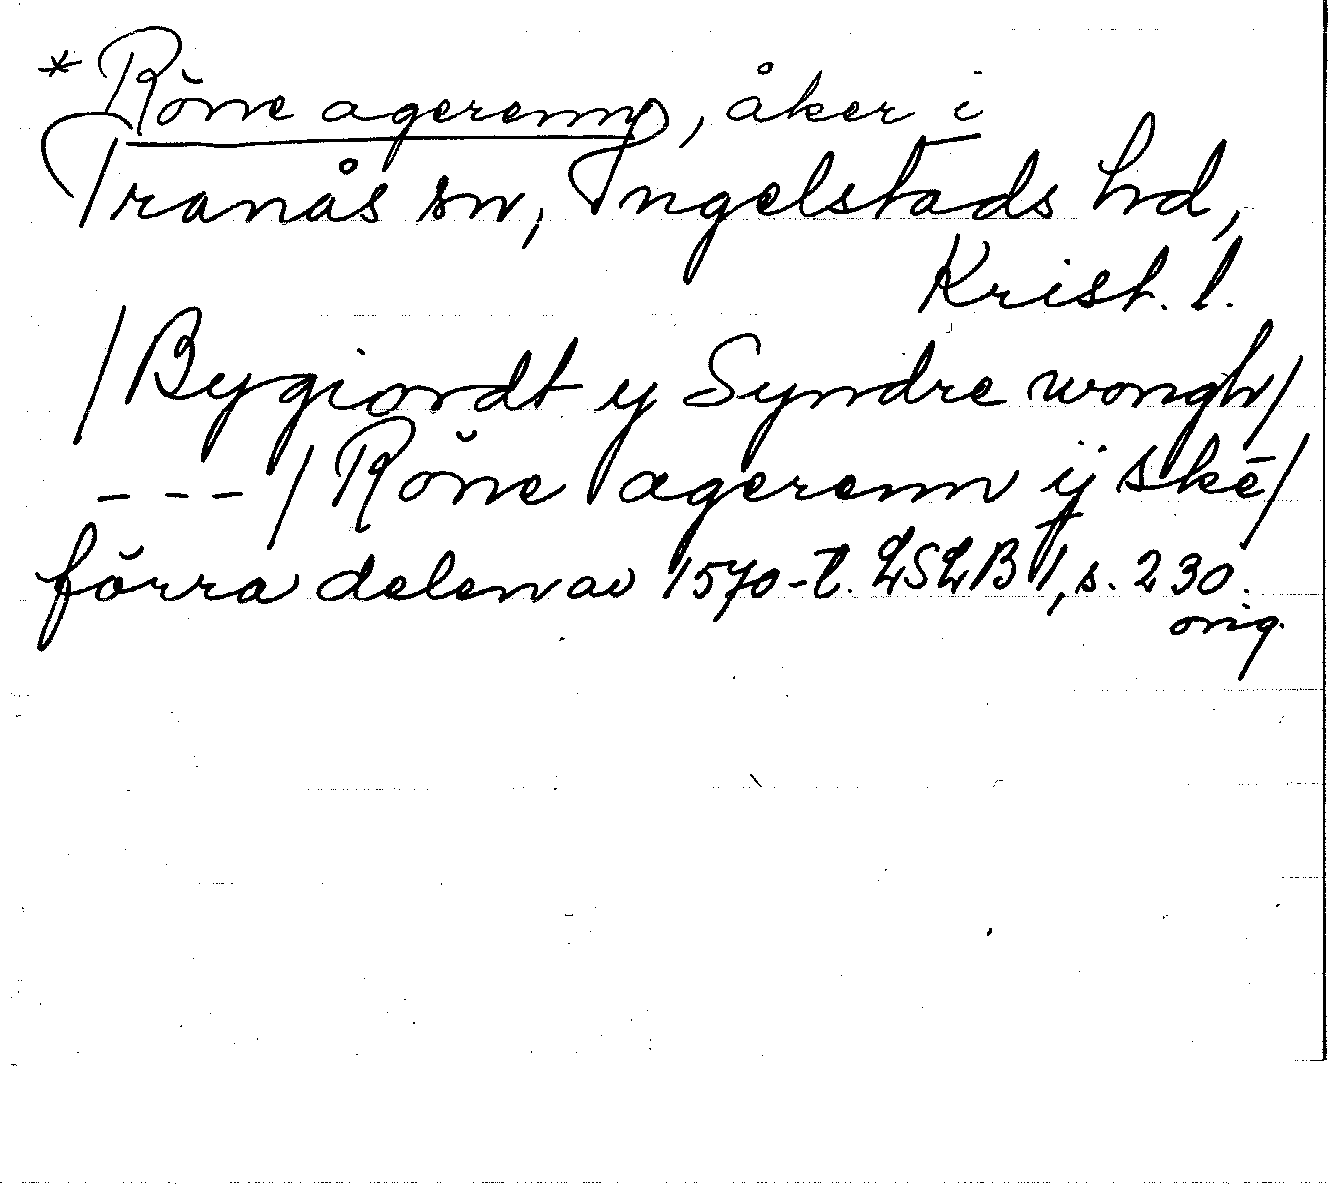 * Röne agerenn, åker i
Tranås sn, Ingelstads hd,
Krist. l.
/Bygiordt y Syndre wongh/
--- /Röne agerenn ij ske/
förra delen av 1570-t. LSLB 1, s. 230.
orig.